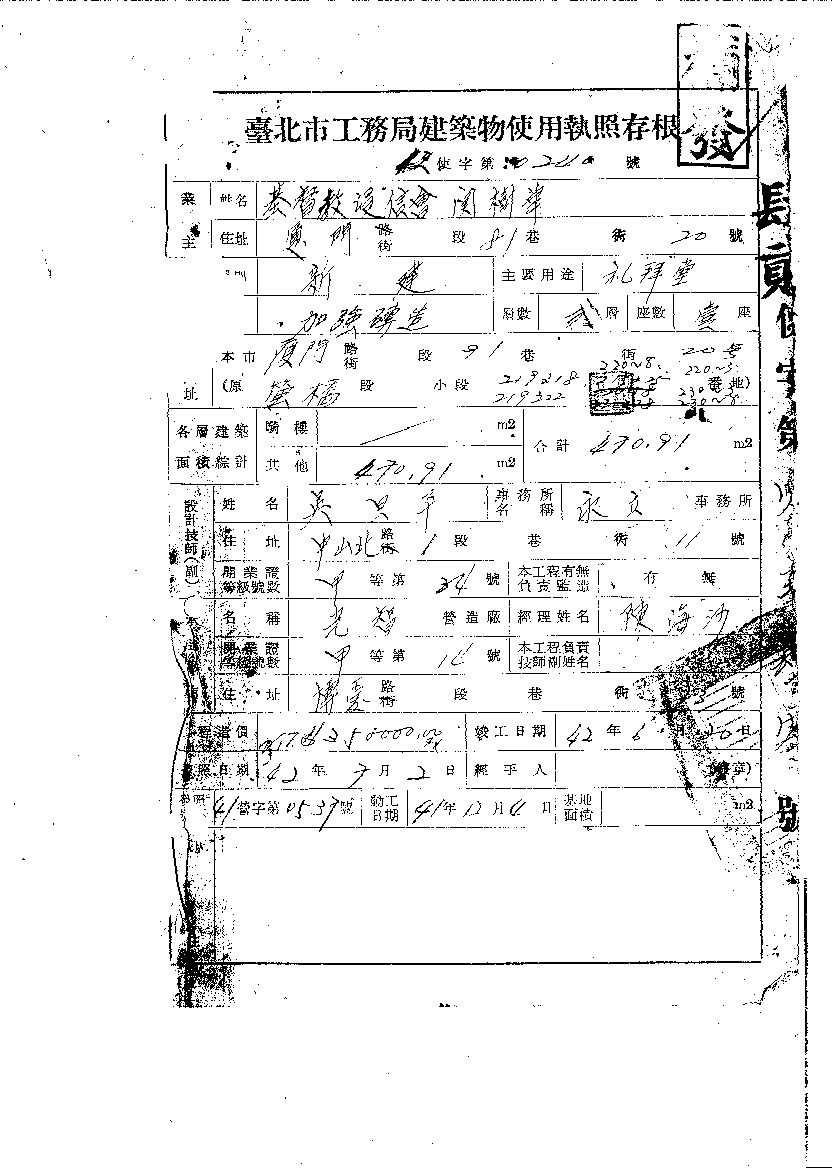 發
臺北市工務局建築物使用執照存根
使字第 0240 號
業主 姓名 基督教浸信會 閔樹華
住址 廈門 路街 段 81 巷 衖 20 號
新建 主要用途 礼拜堂
加強磚造 層數 貳 層 座數 壹 座
本市 廈門 路街 段 91 巷 衖 20号
址 (原 螢橋 段 小段 219218 番地)
219322
220~8
220~3
230~8
各層建築面積綜計 騎樓 m2 合計 470.91 m2
其他 470.91 m2
設計技師(副)
姓名 吳 事務所名稱 永立 事務所
住址 中山北 路街 1 段 巷 衖 11 號
開業證等級號數 甲 等第 24 號 本工程有無負責監造 有 無
名稱 光智 營造廠 經理姓名 陳海沙
開業證等級號數 甲 等第 14 號 本工程負責技師副姓名
住址 博愛 路街 段 巷 衖 3 號
造價 250000.00 竣工日期 42 年 6 月 20 日
日期 42 年 7 月 2 日 經手人 (章)
41 營字第 0539 號 動工日期 41 年 12 月 4 日 基地面積 m2
長貢使字第
號